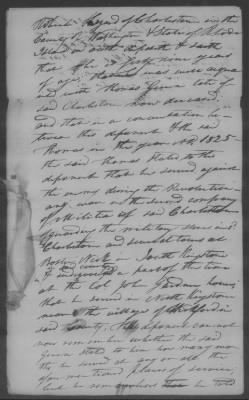 of Charleston in the
County of Washington & State of Rhode
Island on oath deposeth & saith
that he is forty nine years
of age, that he was well acqua
inted with Thomas late of
said Charleston now deceased.
and that in a conversation be-
tween this deponent & the said
Thomas in the year AD 1825
the said Thomas stated to the
deponent that he served against
the enemy during the Revolution-
ary war in the second company
of Militia of said Charleston
the military stores in sd.
Charleston and several times at
Boston Neck in South Kingstown
in said county a part of the time
at the Col John Gardner house,
that he served in North Kingstown
near the village of Wickford in
said County, the deponent can not
now remember whether the said
stated to him how many mon
ths he served at any or all the
afore mentioned places of service,
he told